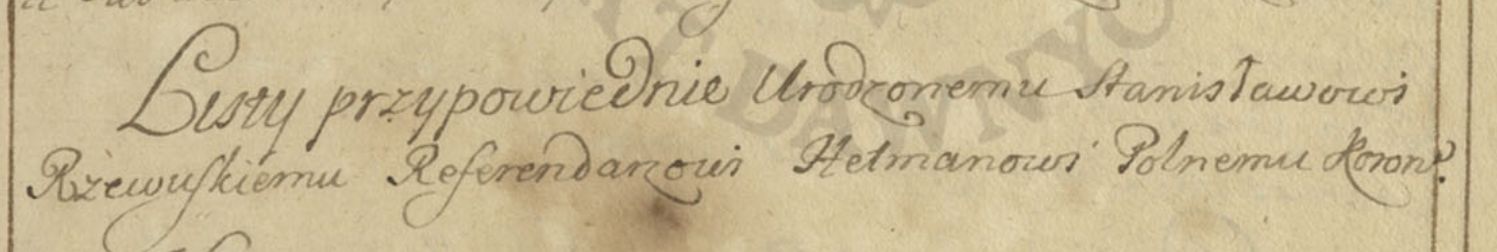 Listy przypowiednie Urodzonemu Stanisławowi
Rżewuskiemu Referendarzowi Hetmanowi Polnemu Koronᵒ.